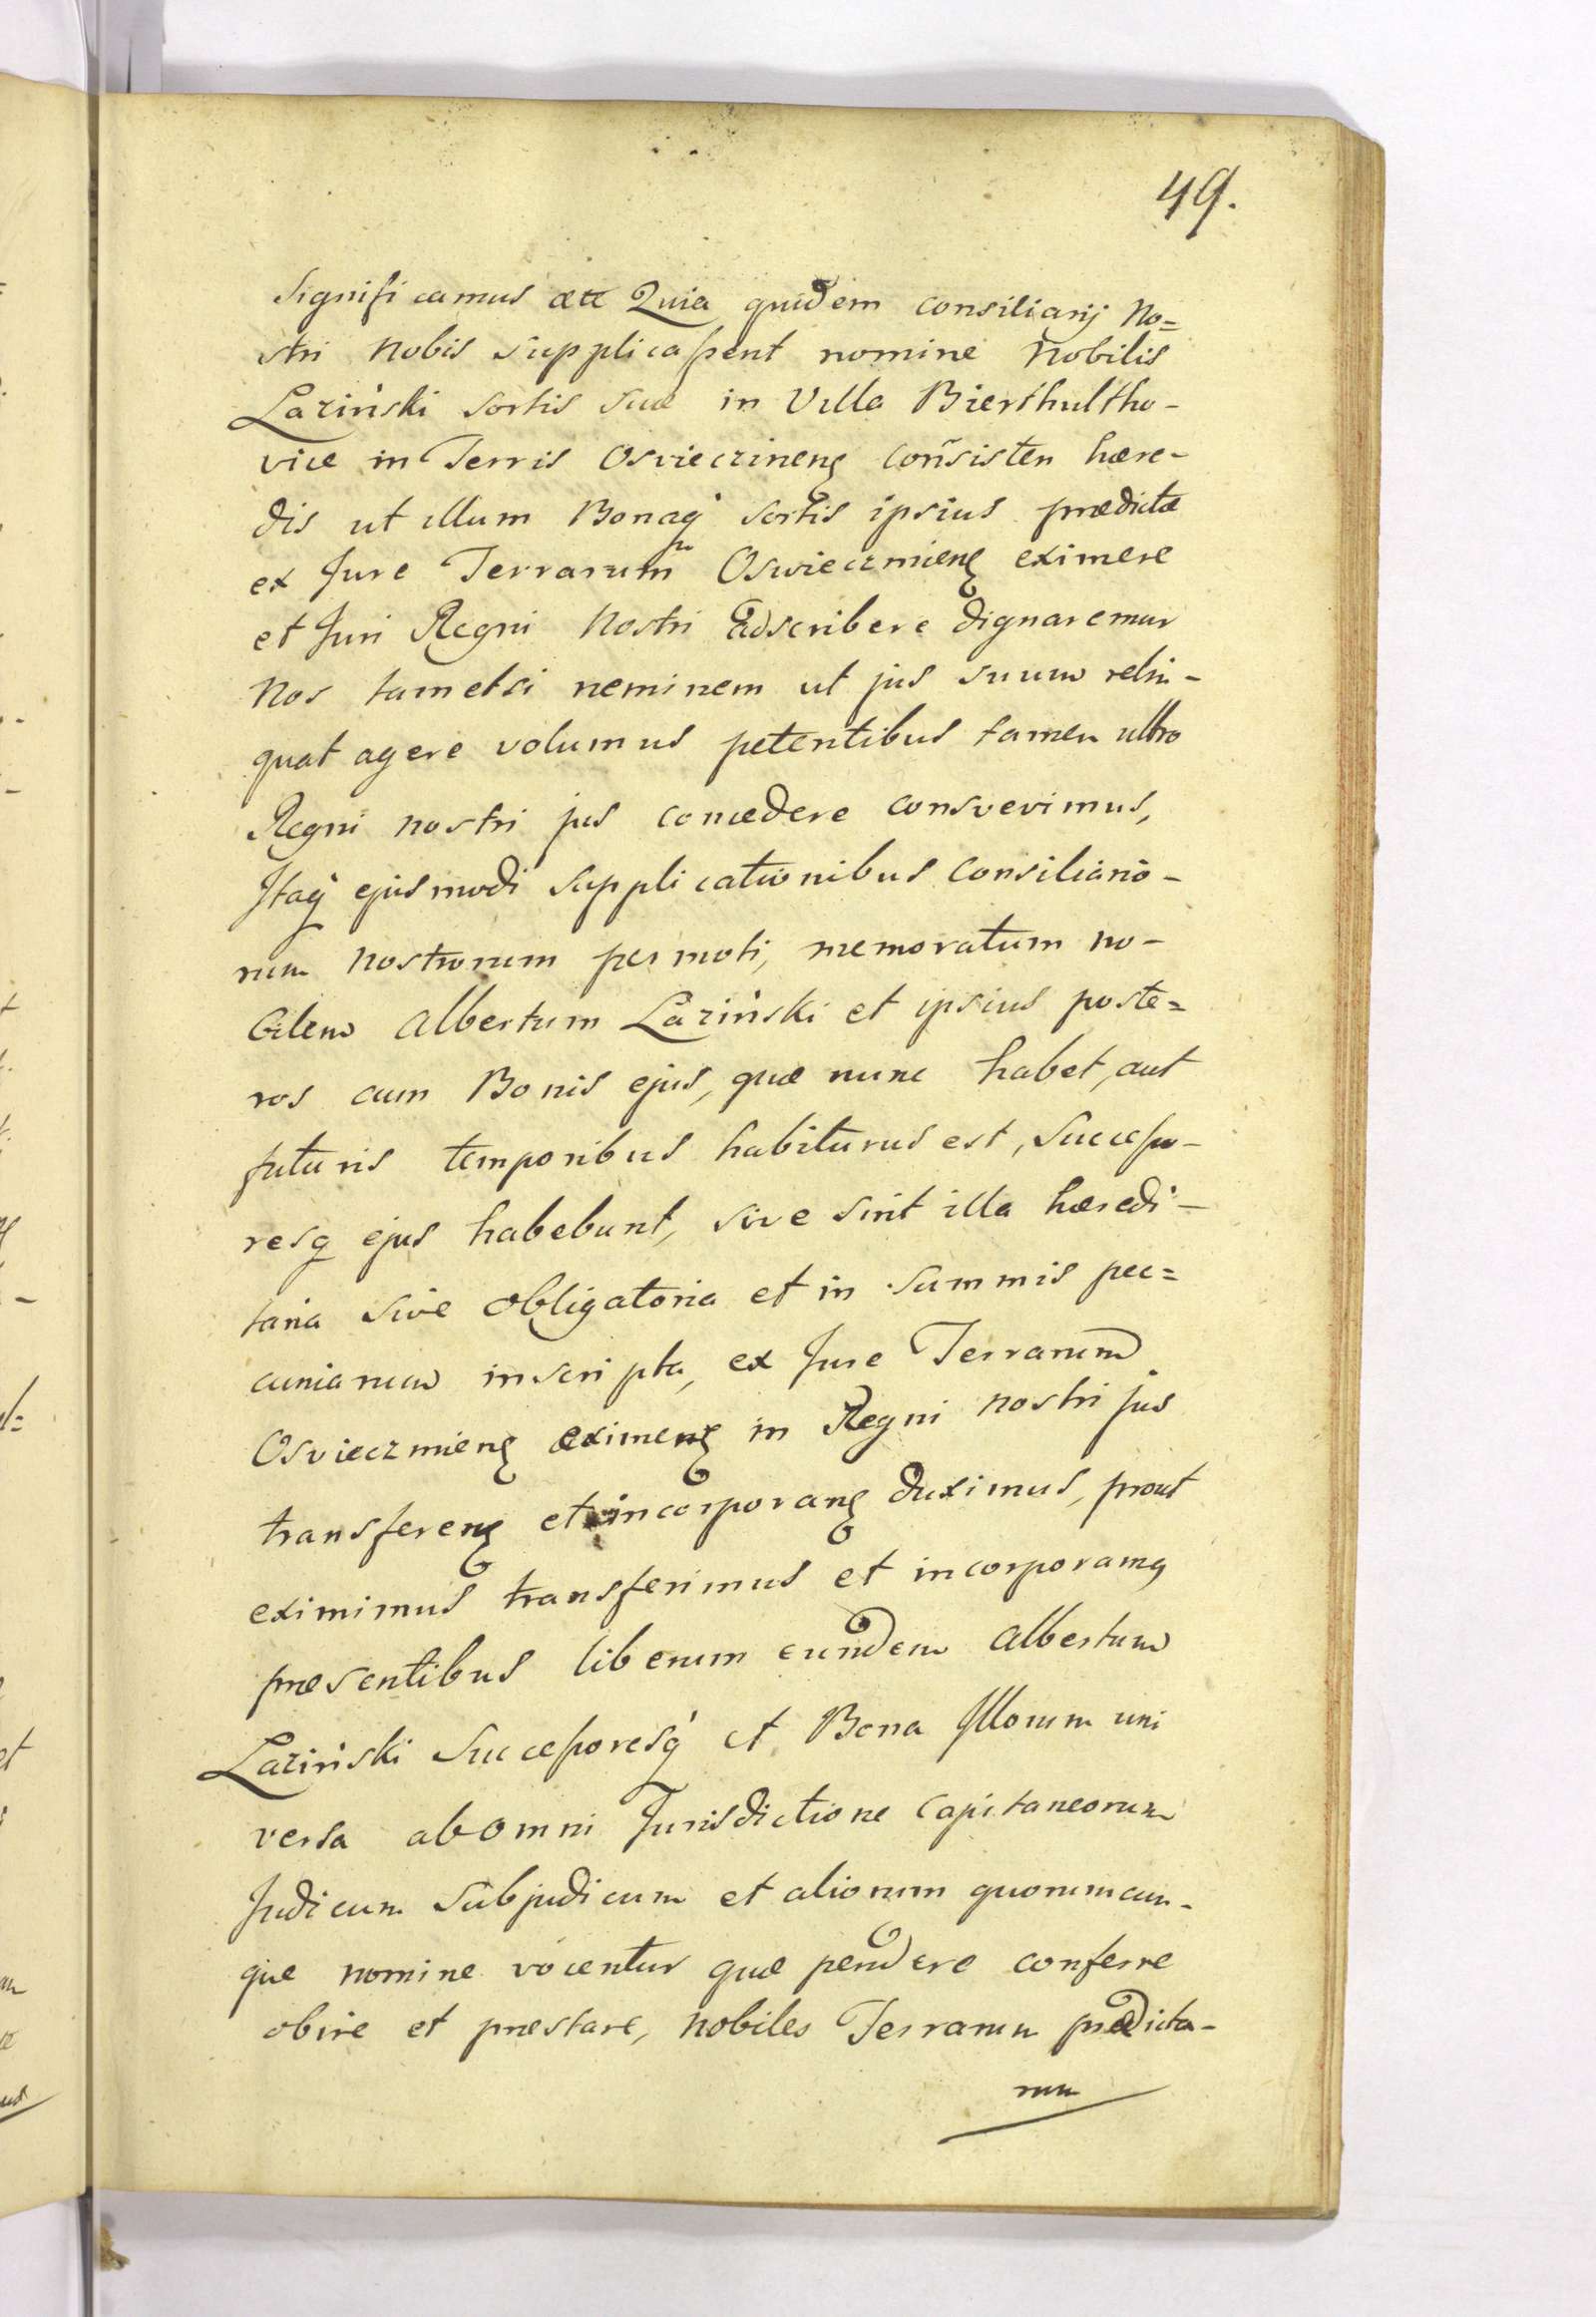 49.
Significamus ætt Quia quidem consiliarij No=
stri Nobis supplicaßent nomine Nobilis
Laziński sortis suæ in Villa Bierthultho-
vice in Terris Osviecrineng consisten hære-
dis ut illum Bonaq́ sortis ipsius prædictæ
ex Jure Terrarum Oswieczmieng eximere
et Juri Regni Nostri adscribere dignaremur
Nos tametsi neminem ut jus suum relin-
quat agere volumus petentibus tamen ultro
Regni nostri jus concedere consvevimus,
Itaq́ ejusmodi supplicationibus Consiliario-
rum Nostrorum permoti, memoratum no-
bilem Albertum Laziński et ipsius poste=
ros cum Bonis ejus, quæ nunc habet, aut
futuris temporibus habiturus est, Succeßo-
resq ejus habebunt, sive sint illa hæredi-
taria sive obligatoria et in summis pec=
cuniarum inscripta, ex Jure Terrarum
Osvieczmieng eximeng in Regni nostri jus
transfereng et incorporang duximus, prout
eximimus transferimus et incorporamq
præsentibus liberum eundem Albertum
Laziński Succeßoresq́ et Bona Illorum uni
versa ab omni Jurisdictione Capitaneorum
Judicum Subjudicum et aliorum quorumcun-
que nomine vocentur quæ pendere conferre
obire et præstare, Nobiles Terrarum prædicta-
rum